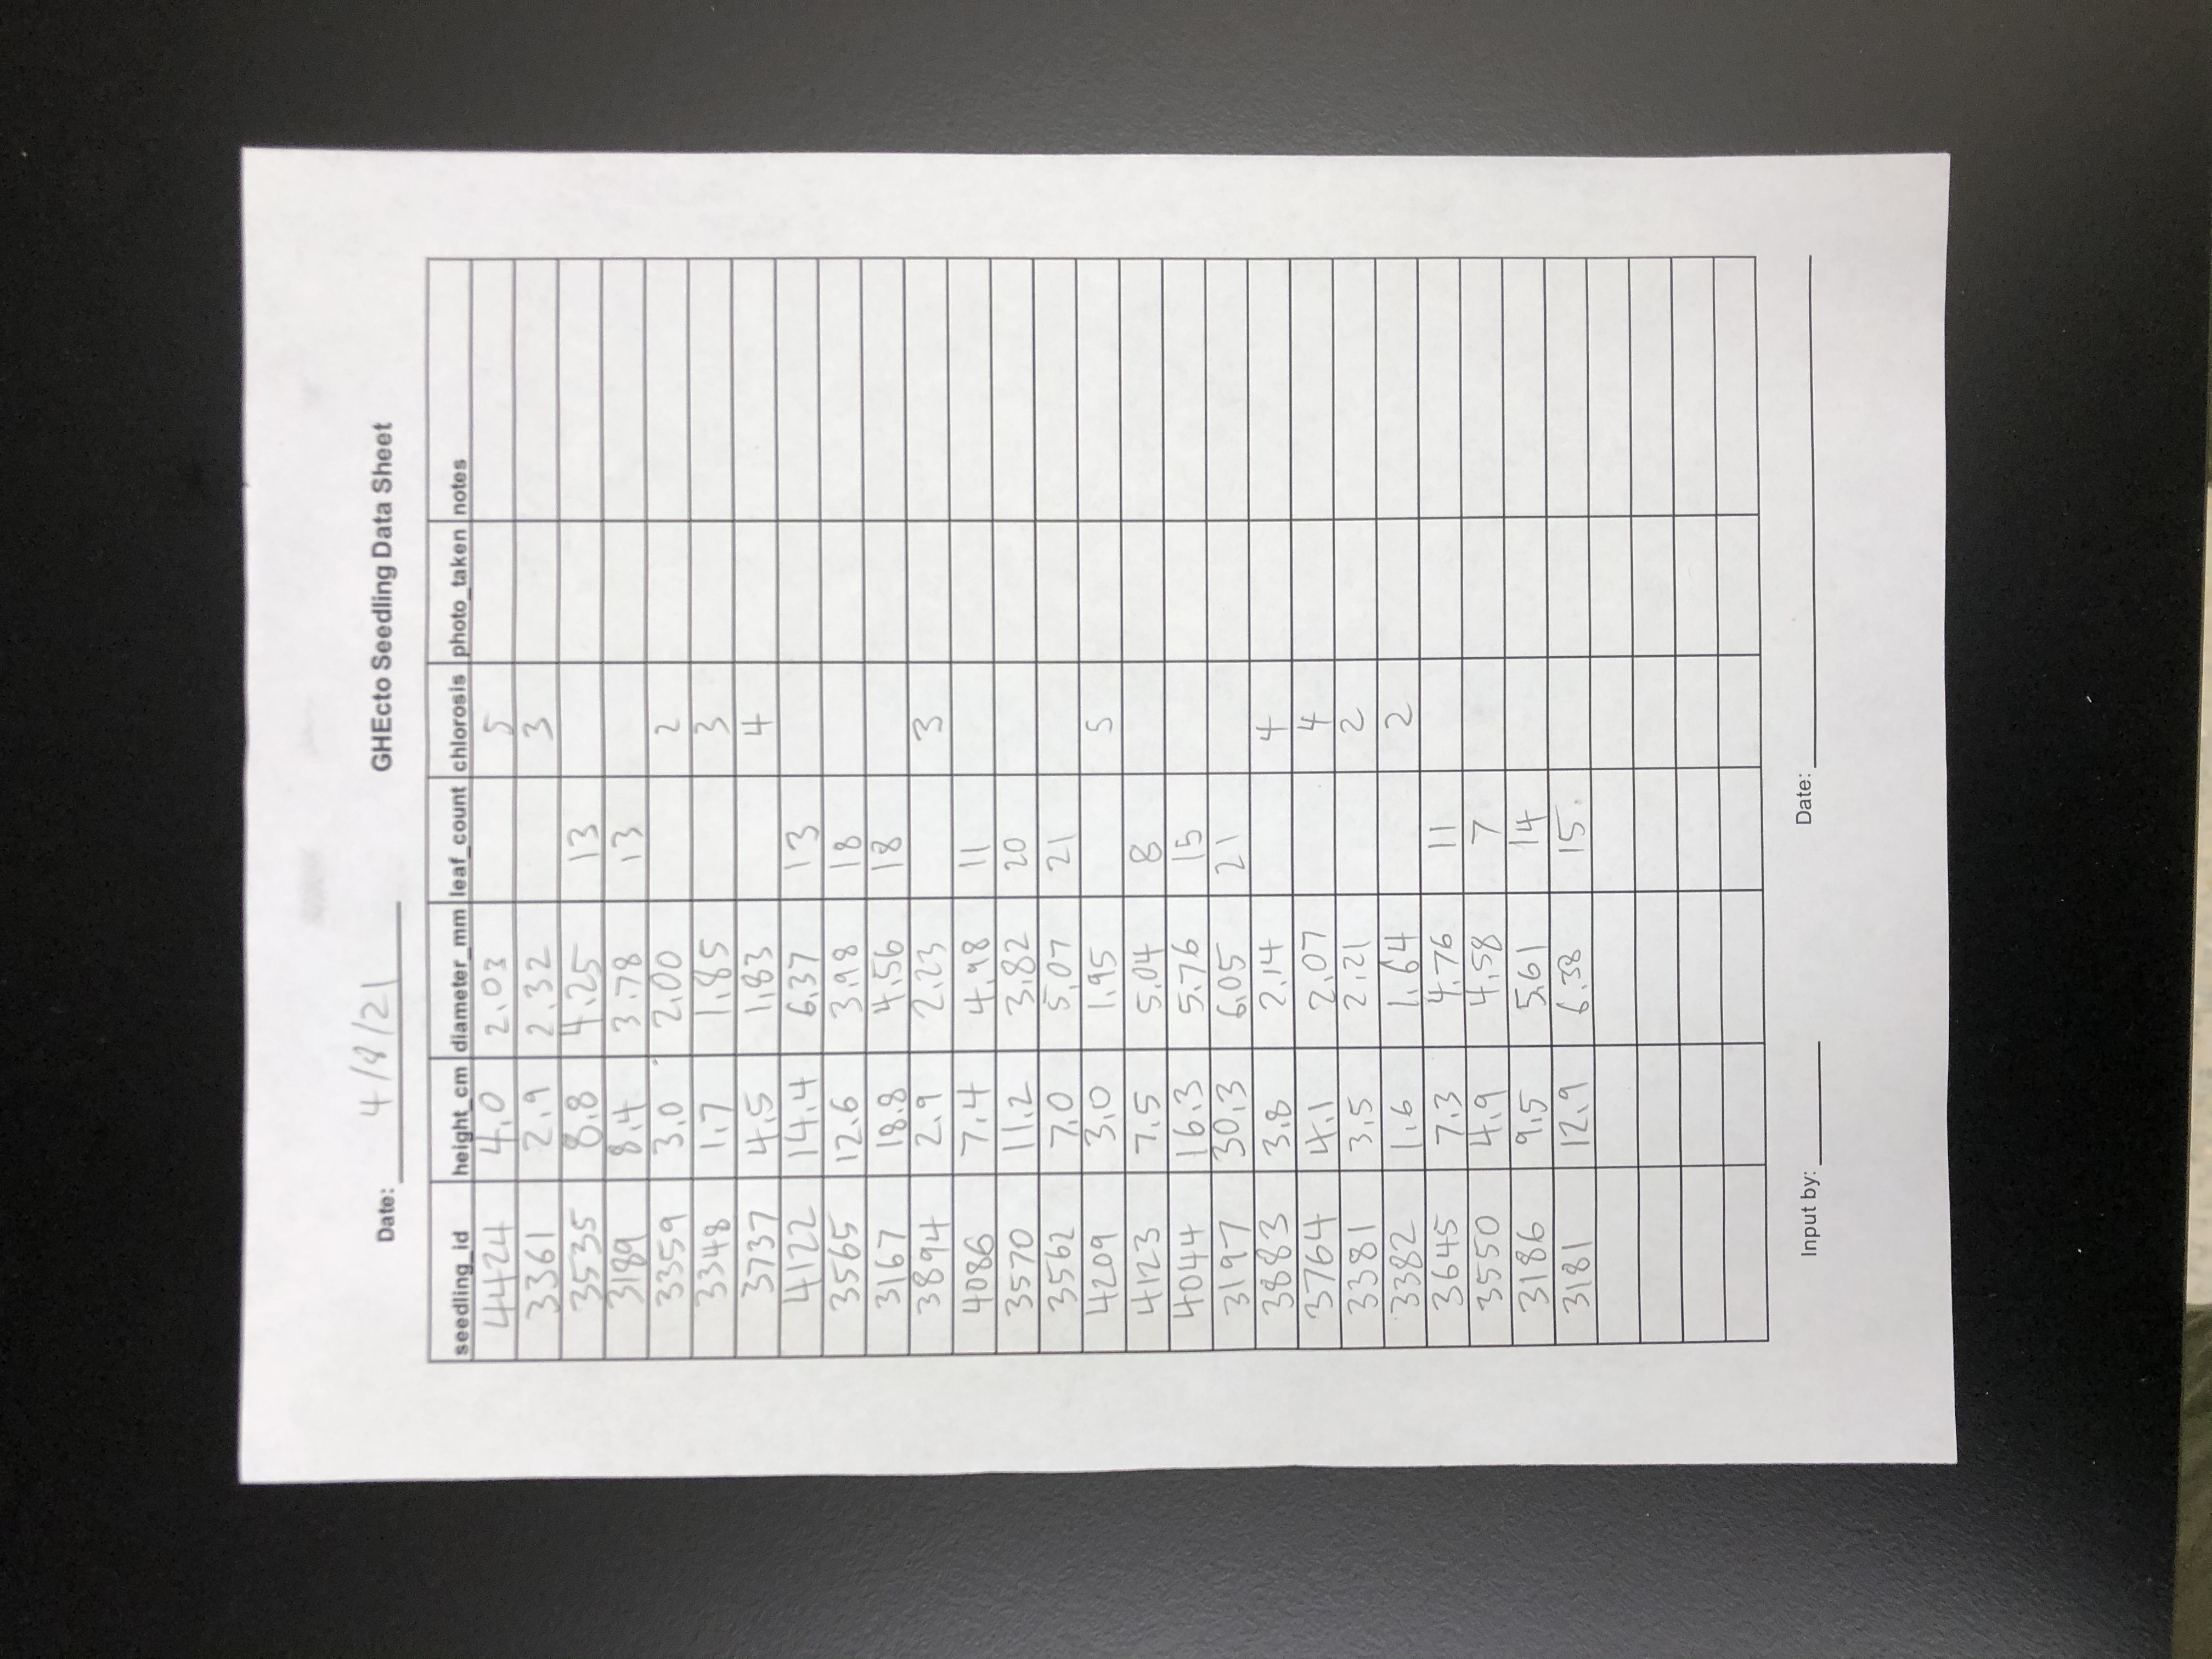 Date: 4/8/21 GHEcto Seedling Data Sheet
seedling_id height_cm diameter_mm leaf_count chlorosis photo_taken notes
4424 4.0 2.03 5
3361 2.9 2.32 3
3535 8.8 4.25 13
3189 8.4 3.78 13
3359 3.0 2.00 2
3348 1.7 1.85 3
3737 4.5 1.83 4
4122 14.4 6.37 13
3565 12.6 3.98 18
3167 18.8 4.56 18
3894 2.9 2.23 3
4086 7.4 4.98 11
3570 11.2 3.82 20
3562 7.0 5.07 21
4209 3.0 1.95 5
4123 7.5 5.04 8
4044 16.3 5.76 15
3197 30.3 6.05 21
3883 3.8 2.14 4
3764 4.1 2.07 4
3381 3.5 2.21 2
3382 1.6 1.64 2
3645 7.3 4.76 11
3550 4.9 4.58 7
3186 9.5 5.61 14
3181 12.9 6.38 15
Input by: Date: